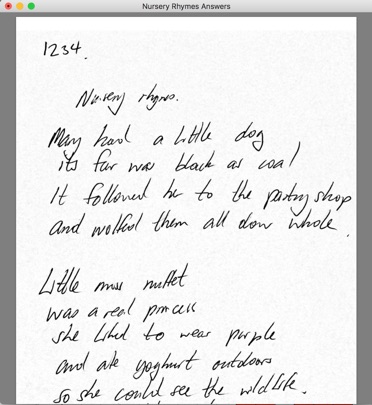 Nursery Rhymes Answers
1234.
Nursery rhymes.
Mary had a little dog
its fur was black as coal
It followed her to the pastry shop
and wolfed them all down whole.
Little miss muffet
was a real princess
she liked to wear purple
and ate yoghurt outdoors
so she could see the wildlife.